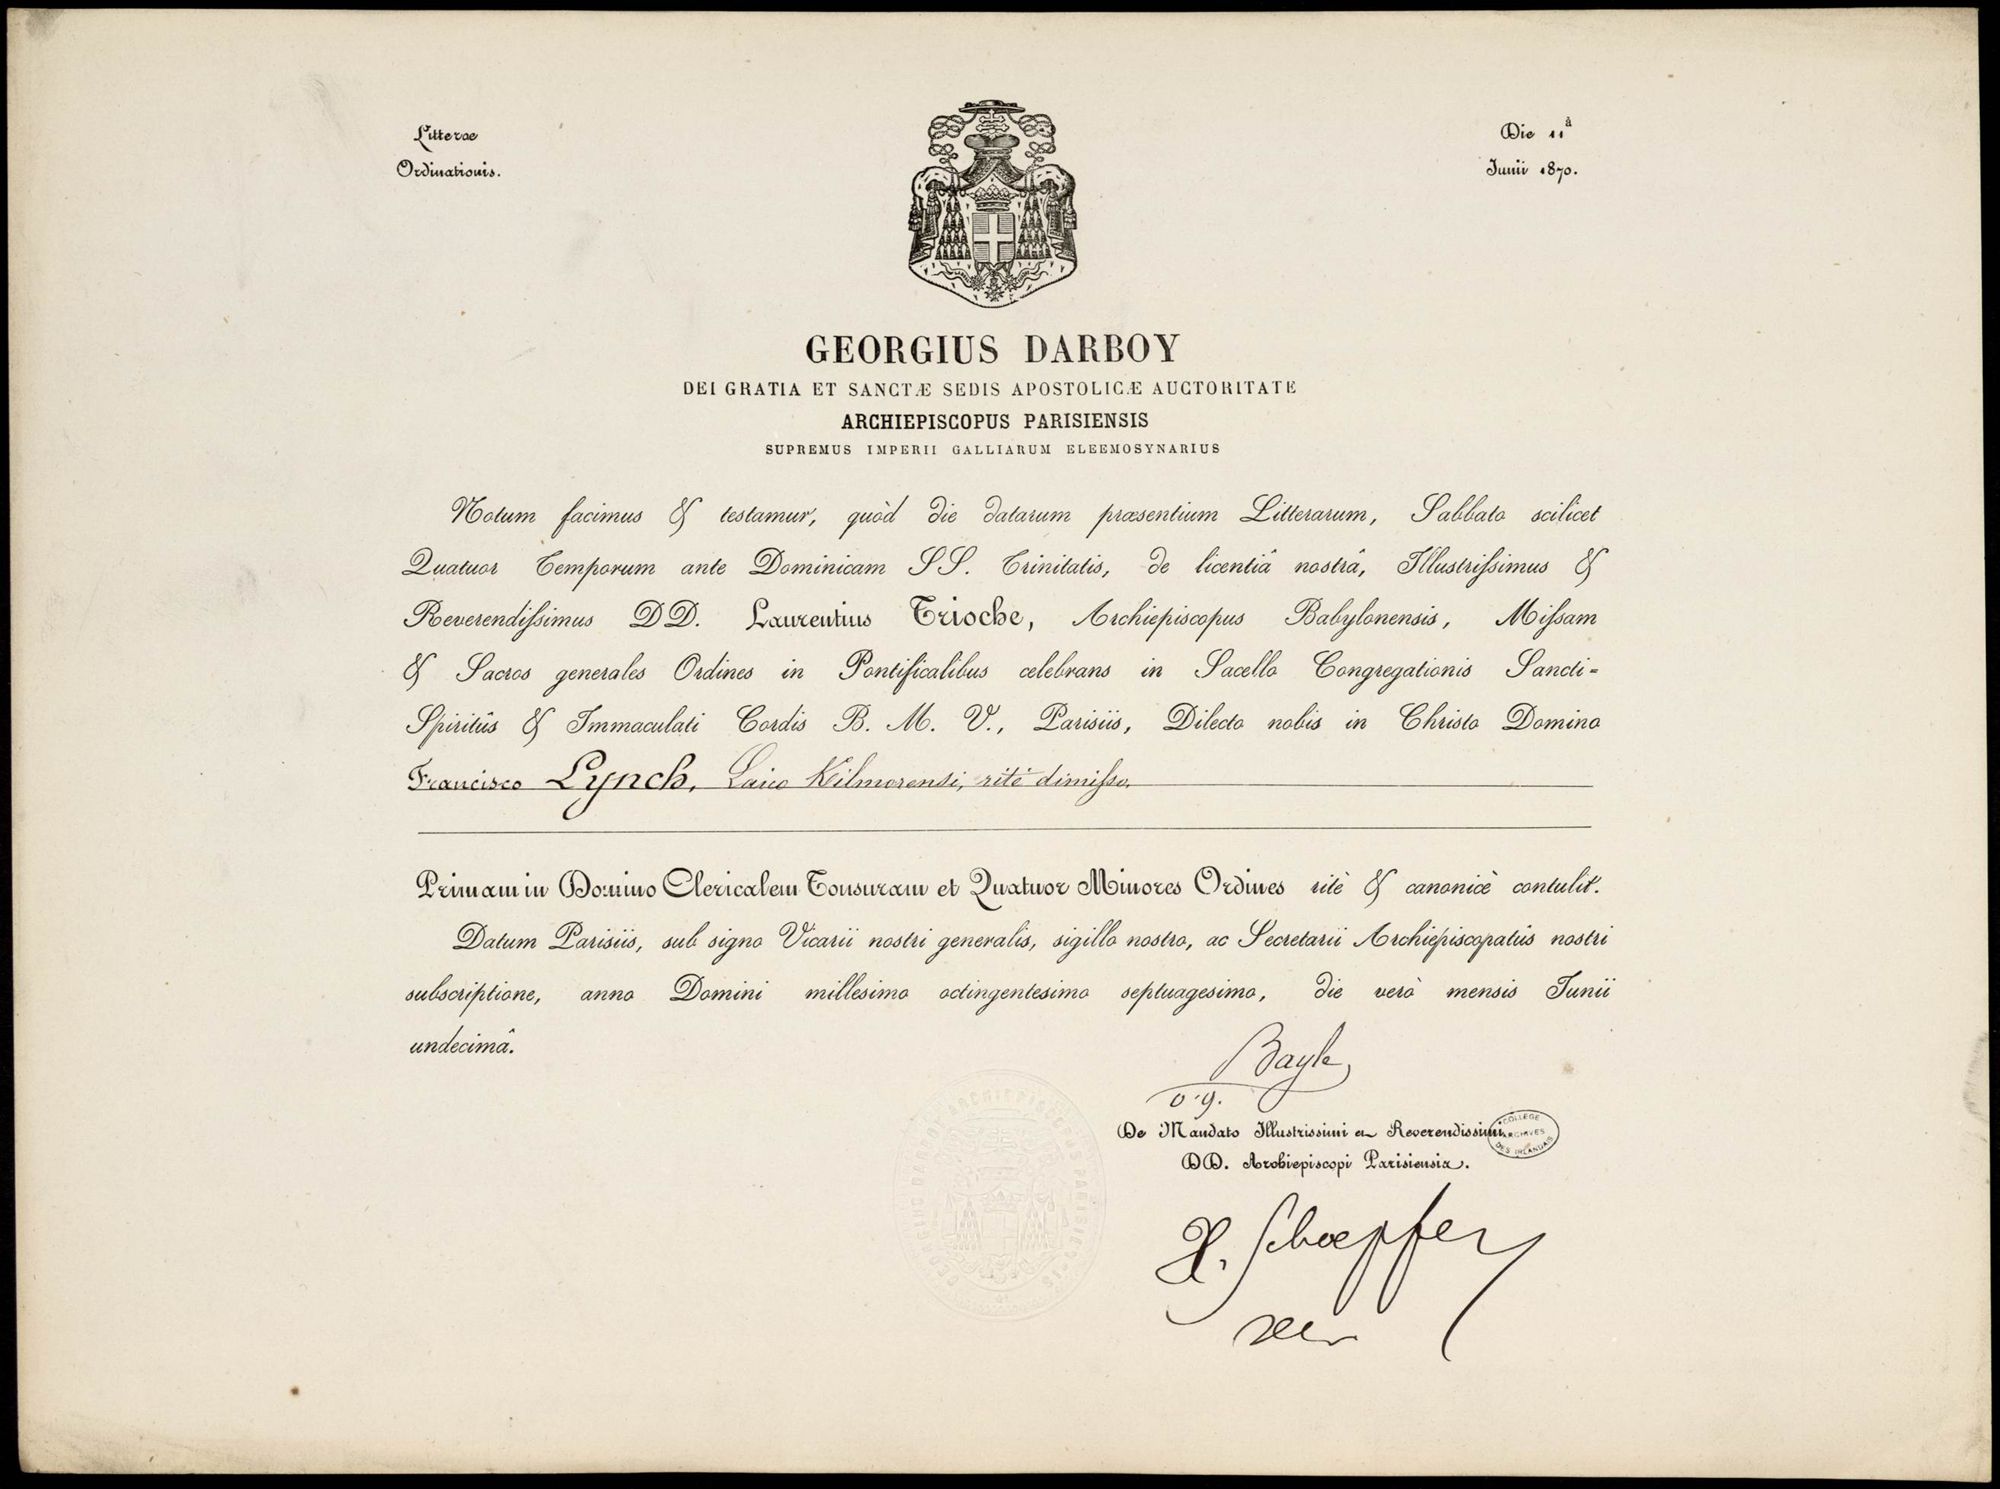 Litterae
Ordinationis.
Die 11â
Junii 1870.
GEORGIUS DARBOY
DEI GRATIA ET SANCTÆ SEDIS APOSTOLICÆ AUCTORITATE
ARCHIEPISCOPUS PARISIENSIS
SUPREMUS IMPERII GALLIARUM ELEEMOSYNARIUS
Notum facimus & testamur, quòd die datarum præsentium Litterarum, Sabbato scilicet
Quatuor Temporum ante Dominicam SS. Trinitatis, de licentiâ nostrâ, Illustrissimus &
Reverendissimus DD. Laurentius Trioche, Archiepiscopus Babylonensis, Missam
& Sacros generales Ordines in Pontificalibus celebrans in Sacello Congregationis Sancti-
Spiritûs & Immaculati Cordis B. M. V., Parisiis, Dilecto nobis in Christo Domino
Francisco Lynch, Laico Kilmorensi, ritè dimisso,
Primam in Domino Clericalem Tonsuram et Quatuor Minores Ordines ritè & canonicè contulit.
Datum Parisiis, sub signo Vicarii nostri generalis, sigillo nostro, ac Secretarii Archiepiscopatûs nostri
subscriptione, anno Domini millesimo octingentesimo septuagesimo, die verò mensis Junii
undecimâ.
Bayle
v. g.
De Mandato Illustrissimi et Reverendissimi
DD. Archiepiscopi Parisiensis.
COLLEGE
ARCHIVES
DES IRLANDAIS
GEORGIUS DARBOY ARCHIEPISCOPUS PARISIENSIS
Schoepfer